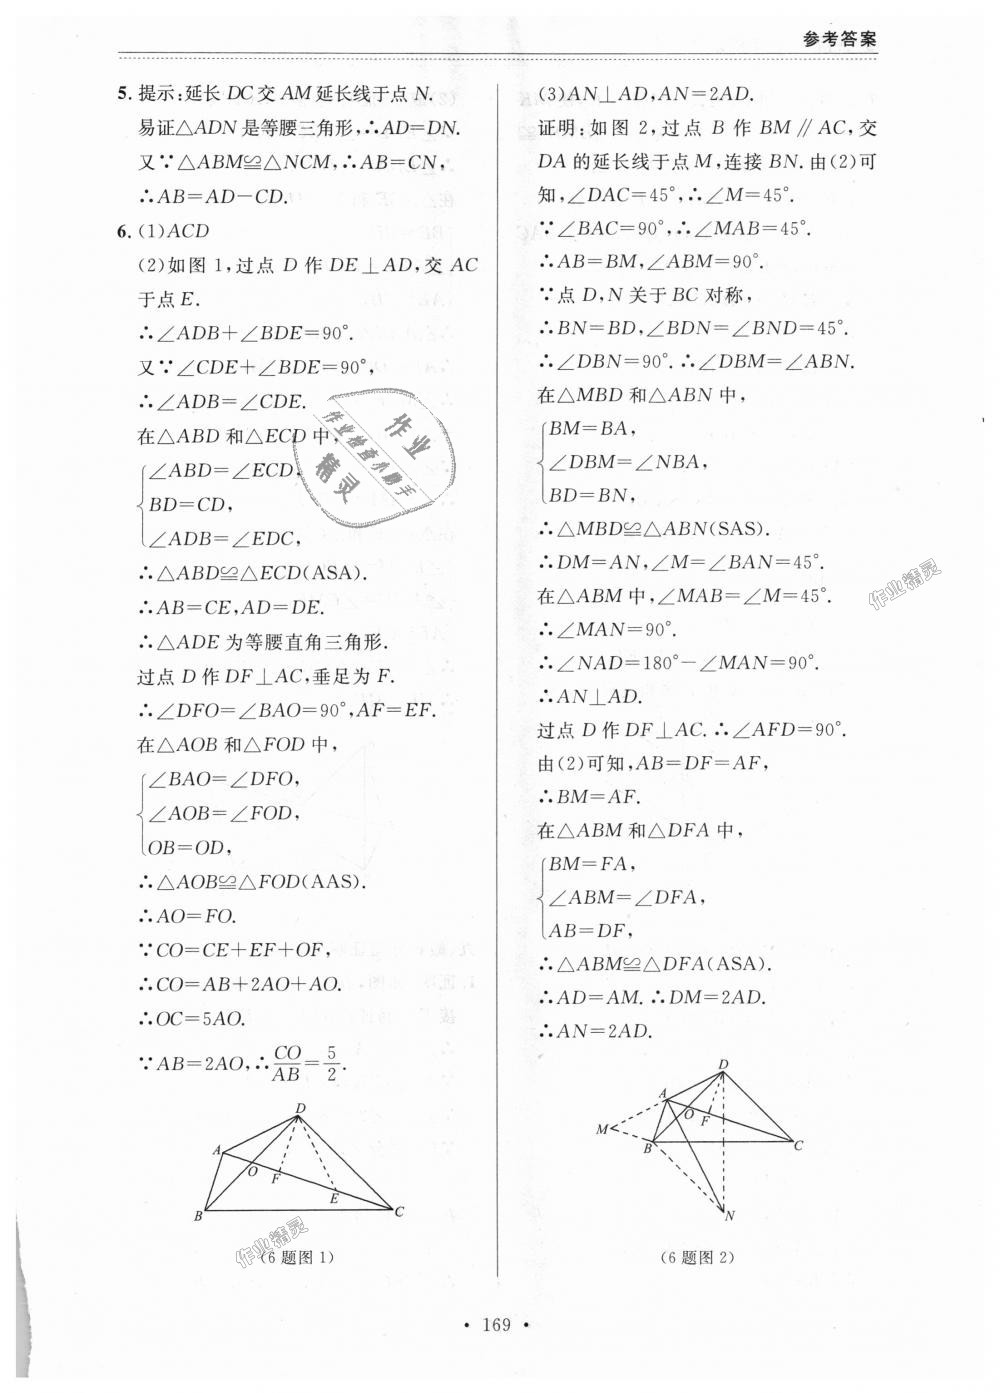 参考答案
5. 提示:延长 DC 交 AM 延长线于点 N.
易证△ADN 是等腰三角形,∴AD=DN.
又∵△ABM≌△NCM,∴AB=CN,
∴AB=AD-CD.
6. (1)ACD
(2)如图 1,过点 D 作 DE⊥AD,交 AC
于点 E.
∴∠ADB+∠BDE=90°.
又∵∠CDE+∠BDE=90°,
∴∠ADB=∠CDE.
在△ABD 和△ECD 中,
∠ABD=∠ECD,
BD=CD,
∠ADB=∠EDC,
∴△ABD≌△ECD(ASA).
∴AB=CE,AD=DE.
∴△ADE 为等腰直角三角形.
过点 D 作 DF⊥AC,垂足为 F.
∴∠DFO=∠BAO=90°,AF=EF.
在△AOB 和△FOD 中,
∠BAO=∠DFO,
∠AOB=∠FOD,
OB=OD,
∴△AOB≌△FOD(AAS).
∴AO=FO.
∵CO=CE+EF+OF,
∴CO=AB+2AO+AO.
∴OC=5AO.
∵AB=2AO,∴CO/AB=5/2.
D
A
O
F
E
B
C
(6 题图 1)
(3)AN⊥AD,AN=2AD.
证明:如图 2,过点 B 作 BM∥AC,交
DA 的延长线于点 M,连接 BN. 由(2)可
知,∠DAC=45°,∴∠M=45°.
∵∠BAC=90°,∴∠MAB=45°.
∴AB=BM,∠ABM=90°.
∵点 D,N 关于 BC 对称,
∴BN=BD,∠BDN=∠BND=45°.
∴∠DBN=90°. ∴∠DBM=∠ABN.
在△MBD 和△ABN 中,
BM=BA,
∠DBM=∠NBA,
BD=BN,
∴△MBD≌△ABN(SAS).
∴DM=AN,∠M=∠BAN=45°.
在△ABM 中,∠MAB=∠M=45°.
∴∠MAN=90°.
∴∠NAD=180°-∠MAN=90°.
∴AN⊥AD.
过点 D 作 DF⊥AC. ∴∠AFD=90°.
由(2)可知,AB=DF=AF,
∴BM=AF.
在△ABM 和△DFA 中,
BM=FA,
∠ABM=∠DFA,
AB=DF,
∴△ABM≌△DFA(ASA).
∴AD=AM. ∴DM=2AD.
∴AN=2AD.
D
A
O
F
M
B
C
N
(6 题图 2)
作业
作业检查小助手
精灵
作业精灵
作业精灵
• 169 •